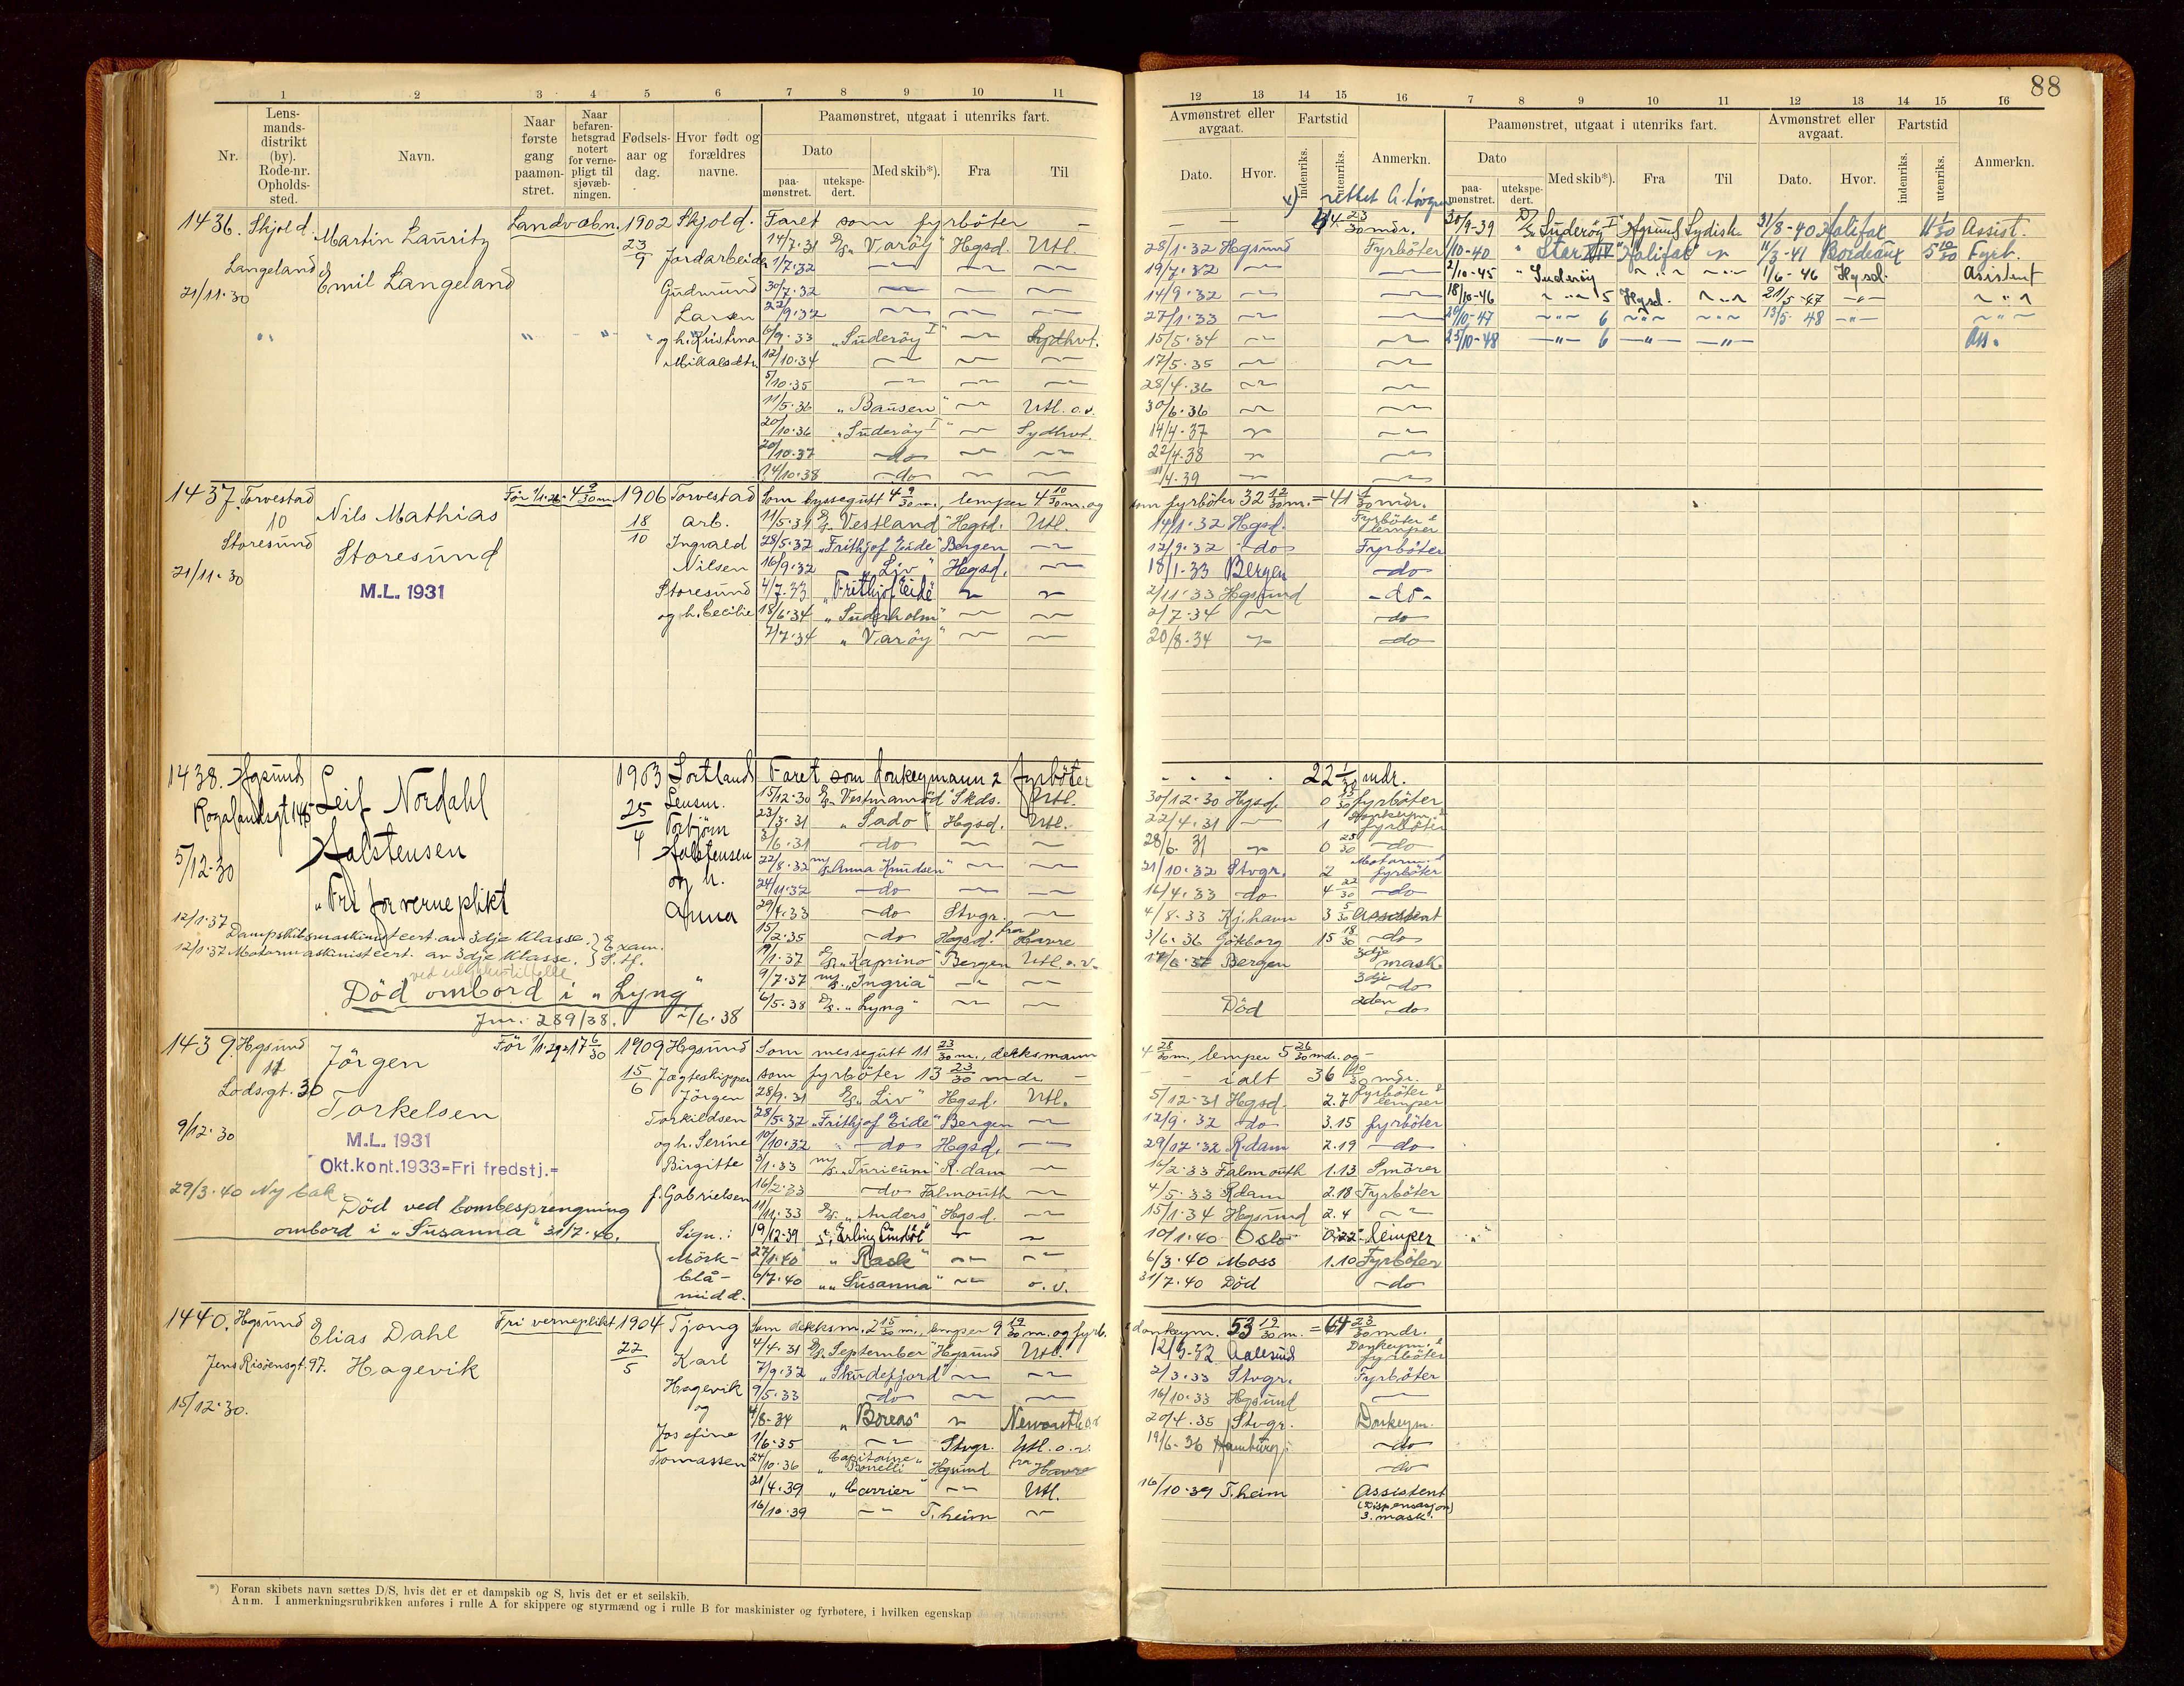 88
1 2 3 4 5 6 7 8 9 10 11
12 13 14 15 16 7 8 9 10 11 12 13 14 15 16
Nr.
Lens-
mands-
distrikt
(by).
Rode-nr.
Opholds-
sted.
Navn.
Naar
første
gang
paamøn-
stret.
Naar
befaren-
hetsgrad
notert
for verne-
pligt til
sjøvæb-
ningen.
Fødsels-
aar og
dag.
Hvor født og
forældres
navne.
Paamønstret, utgaat i utenriks fart.
Dato
paa-
mønstret.
utekspe-
dert.
Med skib*).
Fra
Til
Avmønstret eller
avgaat.
Dato.
Hvor.
Fartstid
indenriks.
utenriks.
Anmerkn.
Paamønstret, utgaat i utenriks fart.
Dato
paa-
mønstret.
utekspe-
dert.
Med skib*).
Fra
Til
Avmønstret eller
avgaat.
Dato.
Hvor.
Fartstid
indenriks.
utenriks.
Anmerkn.
1436. Skjold. Martin Lauritz Landvæbn. 1902 Skjold. Faret som fyrböter
Langeland Emil Langeland 23/9 Jordarbeider
21/11.30 Gudmund
Larsen
og h. Kristina
Mikalsdtr.
14/7.31 D/S "Varöy" Hgsd. Utl. 28/1.32 Hgsund Fyrböter
1/7.32 19/7.32
30/7.32 14/9.32
22/9.32 27/1.33
6/9.33 "Suderöy I" Sydhvt. 15/5.34
12/10.34 17/5.35
5/10.35 28/4.36
11/5.36 "Bausen" Utl. o.v. 30/6.36
20/10.36 "Suderöy I" Sydhvt. 14/4.37
20/10.37 do 22/4.38
14/10.38 do 11/4.39
30/9-39 D/S "Suderöy I" Hgsund Sydish. 31/8-40 Halifax 11 1/30 Assist.
1/10-40 "Star XXIV" Halifax 11/3-41 Bordeaux 5 10/30 Fyrb.
2/10-45 " Suderöy 1/6-46 Hgsd. Assistent
18/10-46 5 Hgsd. 21/5-47
20/10-47 6 13/5 48
25/10-48 6 Ass.
1437. Torvestad Nils Mathias Før 1/1.26 = 4 9/30 m 1906 Torvestad Som byssegutt 4 9/30 m., lemper 4 10/30 m. og som fyrböter 32 12/30 m. = 41 1/30 mdr.
10 Storesund 18/10 arb.
Storesund Ingvald
21/11.30 Nilsen
M.L. 1931 Storesund
og h. Cecilie
11/5.31 D/S "Vestland" Hgsd. Utl. 14/1.32 Hgsd. Fyrböter & lemper
28/5.32 "Frithjof Eide" Bergen 12/9.32 do Fyrböter
16/9.32 "Liv" Hgsd. 18/1-33 Bergen do
4/7.33 "Frithjof Eide" 2/11.33 Hgsund do
18/6.34 "Suderholm" 2/7.34 do
7/7.34 "Varöy" 20/8.34 do
1438. Hgsund Leif Nordahl 1903 Sortland Faret som donkeymann & fyrböter 22 1/30 mdr.
Rogalandsgt 145 Halstensen 25/4 Lensm.
5/12.30 Torbjörn
"Fri for verneplikt Halstensen
og h.
Anna
12/1.37 Dampskibsmaskinistcert. av 3dje klasse.
12/1.37 Motormaskinistcert. av 3dje klasse.
ved ulykkestilfelle
Död ombord i "Lyng"
Jnr. 289/38. /6.38
15/12.30 D/S "Vestmanröd" Skds. Utl. 30/12.30 Hgsd. 0 15/30 fyrböter
23/3.31 "Sado" Hgsd. Utl. 22/4.31 1 donkeym. & fyrböter
3/6.31 do 28/6.31 0 25/30 do
22/8.32 M/S "Anna Knudsen" 21/10.32 Stvgr. 2 Motorm. & fyrböter
24/11.32 do 16/4.33 do 4 22/30 do
29/4.33 do Stvgr. 4/8.33 Kj.havn 3 5/30 Assistent
15/2.35 do Hgsd. fra Havre 3/6.36 Götborg 15 18/30 do
19/1.37 D/S "Kaprino" Bergen Utl. o.v. 17/6.37 Bergen 3dje mask.
9/7.37 M/S "Ingria" 3dje do
6/5.38 D/S "Lyng" Död 2den do
1439. Hgsund Jörgen Før 1/1.29=17 6/30 1909 Hgsund Som messegutt 11 23/30 m., dekksmann 4 28/30 m., lemper 5 26/30 mdr. og
11 Torkelsen 15/6 Jægteskipper som fyrböter 13 23/30 mdr. i alt 36 10/30 mdr.
Lodsgt. 30 Jörgen
9/12.30 Torkildsen
M.L. 1931 og h. Serine
Okt.kont.1933=Fri fredstj.= Birgitte
f. Gabrielsen
29/3.40 Ny bok
Död ved bombesprengning
ombord i "Susanna" 31/7.40.
Sign.:
Mörk-
blå-
midd.
28/9.31 D/S "Liv" Hgsd. Utl. 5/12.31 Hgsd. 2.7 fyrböter & lemper
28/5.32 "Frithjof Eide" Bergen 12/9.32 do 3.15 fyrböter
10/10.32 do Hgsd. 29/12.32 R.dam 2.19 do
3/1.33 M/S "Turicum" R.dam 16/2.33 Falmouth 1.13 Smörer
16/2.33 do Falmouth 4/5.33 Rdam 2.18 Fyrböter
11/11.33 D/S "Anders" Hgsd. 15/1.34 Hgsund 2.4
19/12.39 "Erling Lindöe" 10/1.40 Oslo 0.22 lemper
27/1.40 "Rask" 6/3.40 Moss 1.10 Fyrböter
6/7.40 "Susanna" o.v. 31/7.40 Död do
1440. Hgsund Elias Dahl Fri verneplikt 1904 Tjong Som dekksm. 2 15/30 m., lemper 9 19/30 m. og fyrb. & donkeym. 53 19/30 m. = 64 23/30 mdr.
Jens Risöensgt. 97. Hagevik 22/5 Karl
15/12.30. Hagevik
og
Josefine
Tomassen
4/4.31 D/S "September" Hgsund Utl. 12/3.32 Aalesund Donkeym. & fyrböter
7/9.32 "Skudefjord" 2/3.33 Stvgr. Fyrböter
9/5.33 do 16/10.33 Hgsund
4/8.34 "Boreas" Newcastle 20/4.35 Stvgr. Donkeym.
1/6.35 Stvgr. Utl. o.v. 19/6-36 Hamburg do
24/10.36 "Capitaine Bonelli" Hgsund fra Havre do
21/4.39 "Carrier" Utl. 16/10.39 T.heim Assistent
16/10.39 T.heim (Dispensasjon) 3. mask.
*) Foran skibets navn sættes D/S, hvis det er et dampskib og S, hvis det er et seilskib.
Anm. I anmerkningsrubrikken anføres i rulle A for skippere og styrmænd og i rulle B for maskinister og fyrbøtere, i hvilken egenskap